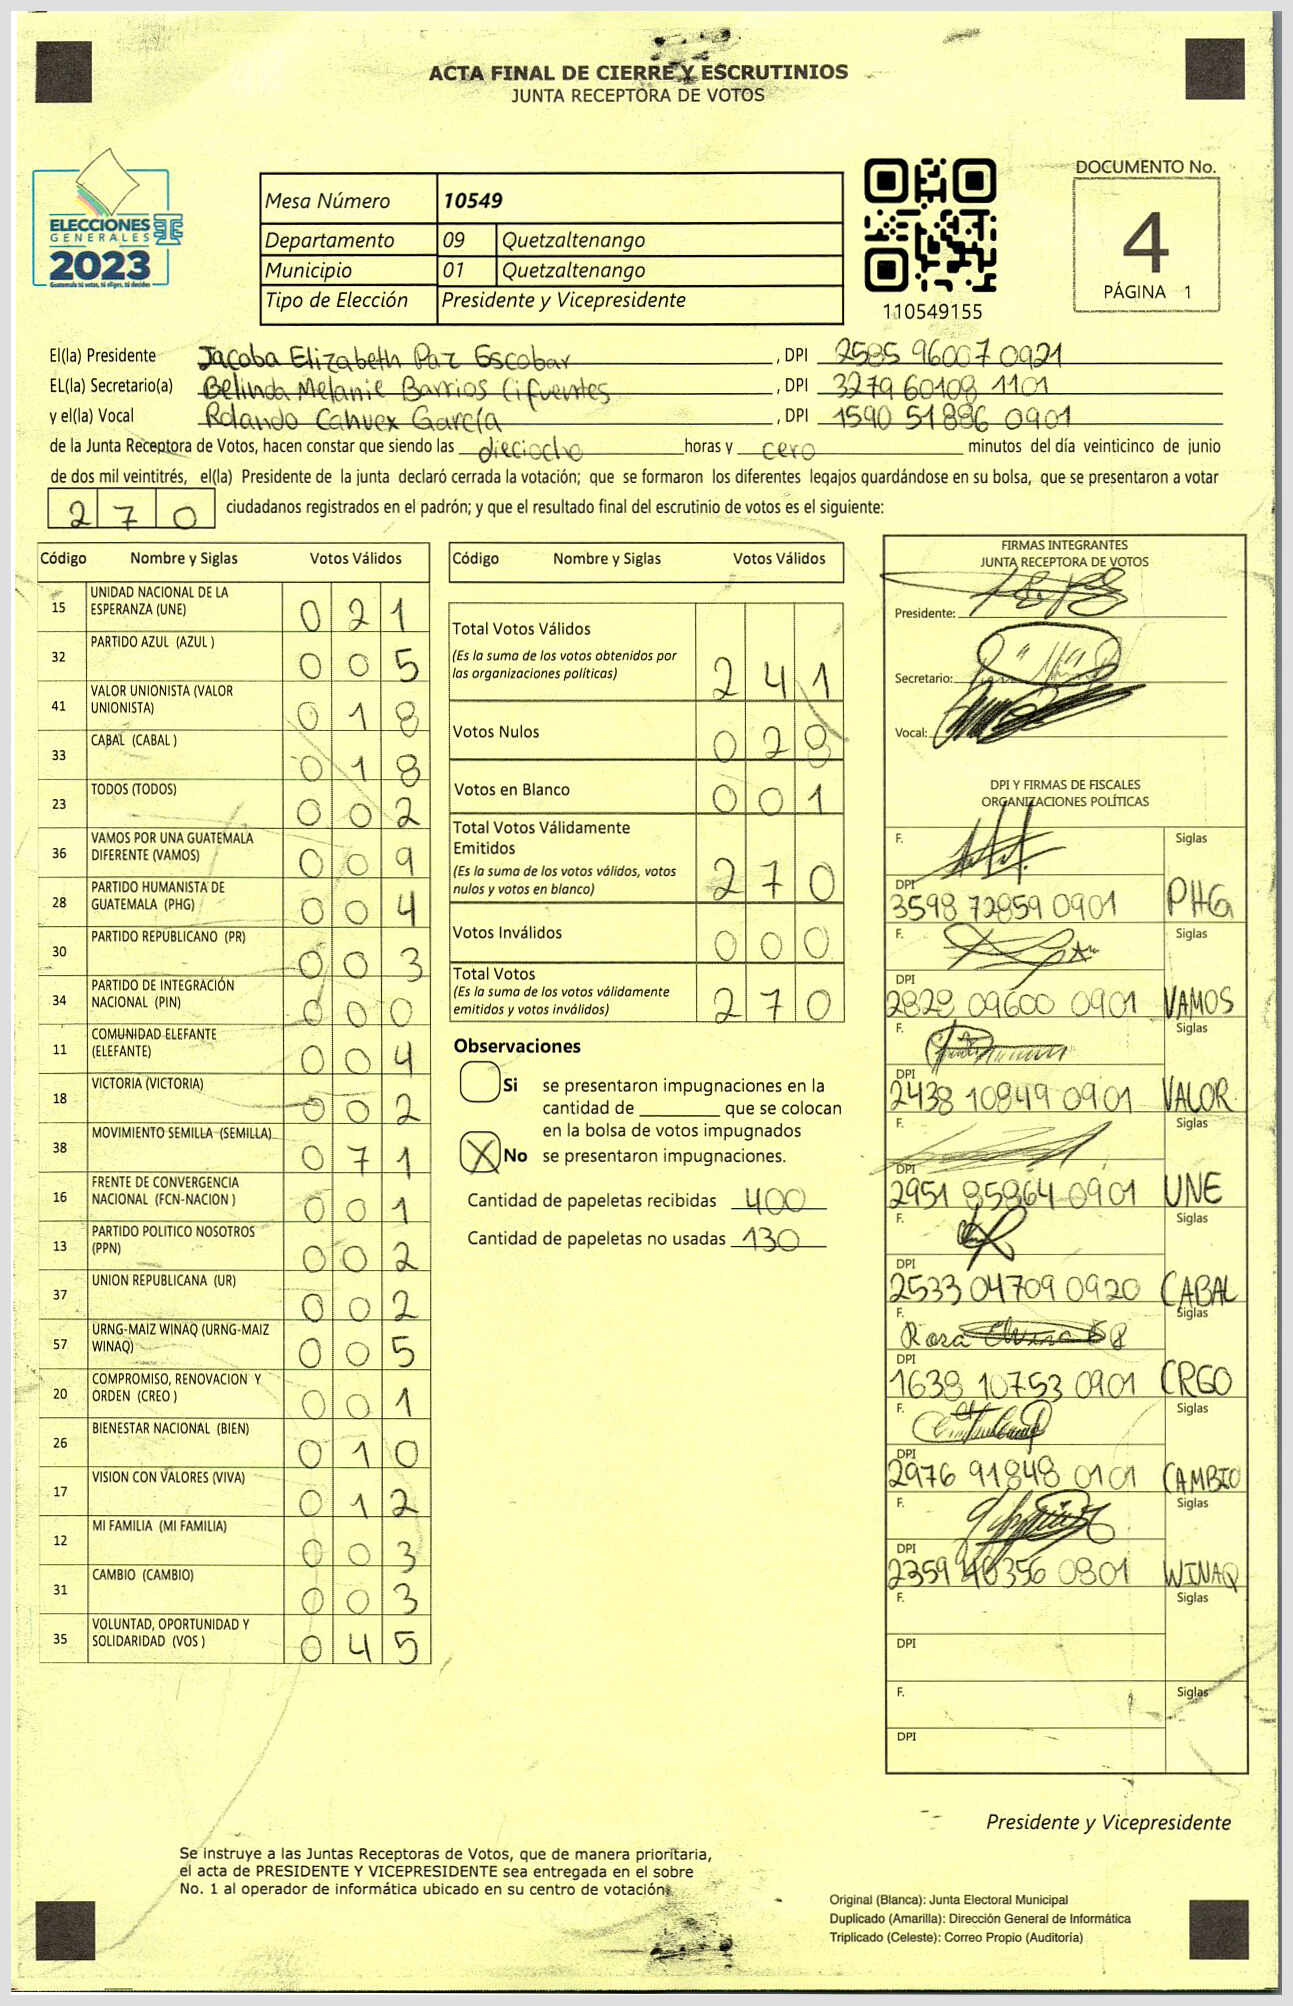 ACTA FINAL DE CIERRE Y ESCRUTINIOS
JUNTA RECEPTORA DE VOTOS
ELECCIONES
GENERALES
2023
Guatemala tú votas, tú eliges, tú decides
Mesa Número 10549
Departamento 09 Quetzaltenango
Municipio 01 Quetzaltenango
Tipo de Elección Presidente y Vicepresidente
110549155
DOCUMENTO No.
4
PÁGINA 1
El(la) Presidente Jacoba Elizabeth Paz Escobar, DPI 2585 96007 0921
EL(la) Secretario(a) Belinda Melanie Barrios Cifuentes, DPI 3279 60108 1101
y el(la) Vocal Rolando Cahuex García, DPI 1590 51886 0901
de la Junta Receptora de Votos, hacen constar que siendo las dieciocho horas y cero minutos del día veinticinco de junio
de dos mil veintitrés, el(la) Presidente de la junta declaró cerrada la votación; que se formaron los diferentes legajos guardándose en su bolsa, que se presentaron a votar
270 ciudadanos registrados en el padrón; y que el resultado final del escrutinio de votos es el siguiente:
Código Nombre y Siglas Votos Válidos
15 UNIDAD NACIONAL DE LA ESPERANZA (UNE) 021
32 PARTIDO AZUL (AZUL ) 005
41 VALOR UNIONISTA (VALOR UNIONISTA) 018
33 CABAL (CABAL ) 018
23 TODOS (TODOS) 002
36 VAMOS POR UNA GUATEMALA DIFERENTE (VAMOS) 009
28 PARTIDO HUMANISTA DE GUATEMALA (PHG) 004
30 PARTIDO REPUBLICANO (PR) 003
34 PARTIDO DE INTEGRACIÓN NACIONAL (PIN) 000
11 COMUNIDAD ELEFANTE (ELEFANTE) 004
18 VICTORIA (VICTORIA) 002
38 MOVIMIENTO SEMILLA (SEMILLA) 071
16 FRENTE DE CONVERGENCIA NACIONAL (FCN-NACION ) 001
13 PARTIDO POLITICO NOSOTROS (PPN) 002
37 UNION REPUBLICANA (UR) 002
57 URNG-MAIZ WINAQ (URNG-MAIZ WINAQ) 005
20 COMPROMISO, RENOVACION Y ORDEN (CREO ) 001
26 BIENESTAR NACIONAL (BIEN) 010
17 VISION CON VALORES (VIVA) 012
12 MI FAMILIA (MI FAMILIA) 003
31 CAMBIO (CAMBIO) 003
35 VOLUNTAD, OPORTUNIDAD Y SOLIDARIDAD (VOS ) 045
Código Nombre y Siglas Votos Válidos
Total Votos Válidos 241
(Es la suma de los votos obtenidos por
las organizaciones políticas)
Votos Nulos 028
Votos en Blanco 001
Total Votos Válidamente
Emitidos 270
(Es la suma de los votos válidos, votos
nulos y votos en blanco)
Votos Inválidos 000
Total Votos 270
(Es la suma de los votos válidamente
emitidos y votos inválidos)
Observaciones
Si se presentaron impugnaciones en la
cantidad de ________ que se colocan
en la bolsa de votos impugnados
X No se presentaron impugnaciones.
Cantidad de papeletas recibidas 400
Cantidad de papeletas no usadas 130
FIRMAS INTEGRANTES
JUNTA RECEPTORA DE VOTOS
Presidente:
Secretario:
Vocal:
DPI Y FIRMAS DE FISCALES
ORGANIZACIONES POLÍTICAS
F. Siglas
DPI
3598 72859 0901 PHG
F. Siglas
DPI
2828 09600 0901 VAMOS
F. Siglas
DPI
2438 10849 0901 VALOR
F. Siglas
DPI
2951 85864 0901 UNE
F. Siglas
DPI
2533 04709 0920 CABAL
F. Rosa Siglas
DPI
1638 10753 0901 CREO
F. Siglas
DPI
2976 91848 0101 CAMBIO
F. Siglas
DPI
2359 40356 0801 WINAQ
F. Siglas
DPI
F. Siglas
DPI
Presidente y Vicepresidente
Se instruye a las Juntas Receptoras de Votos, que de manera prioritaria,
el acta de PRESIDENTE Y VICEPRESIDENTE sea entregada en el sobre
No. 1 al operador de informática ubicado en su centro de votación.
Original (Blanca): Junta Electoral Municipal
Duplicado (Amarilla): Dirección General de Informática
Triplicado (Celeste): Correo Propio (Auditoría)